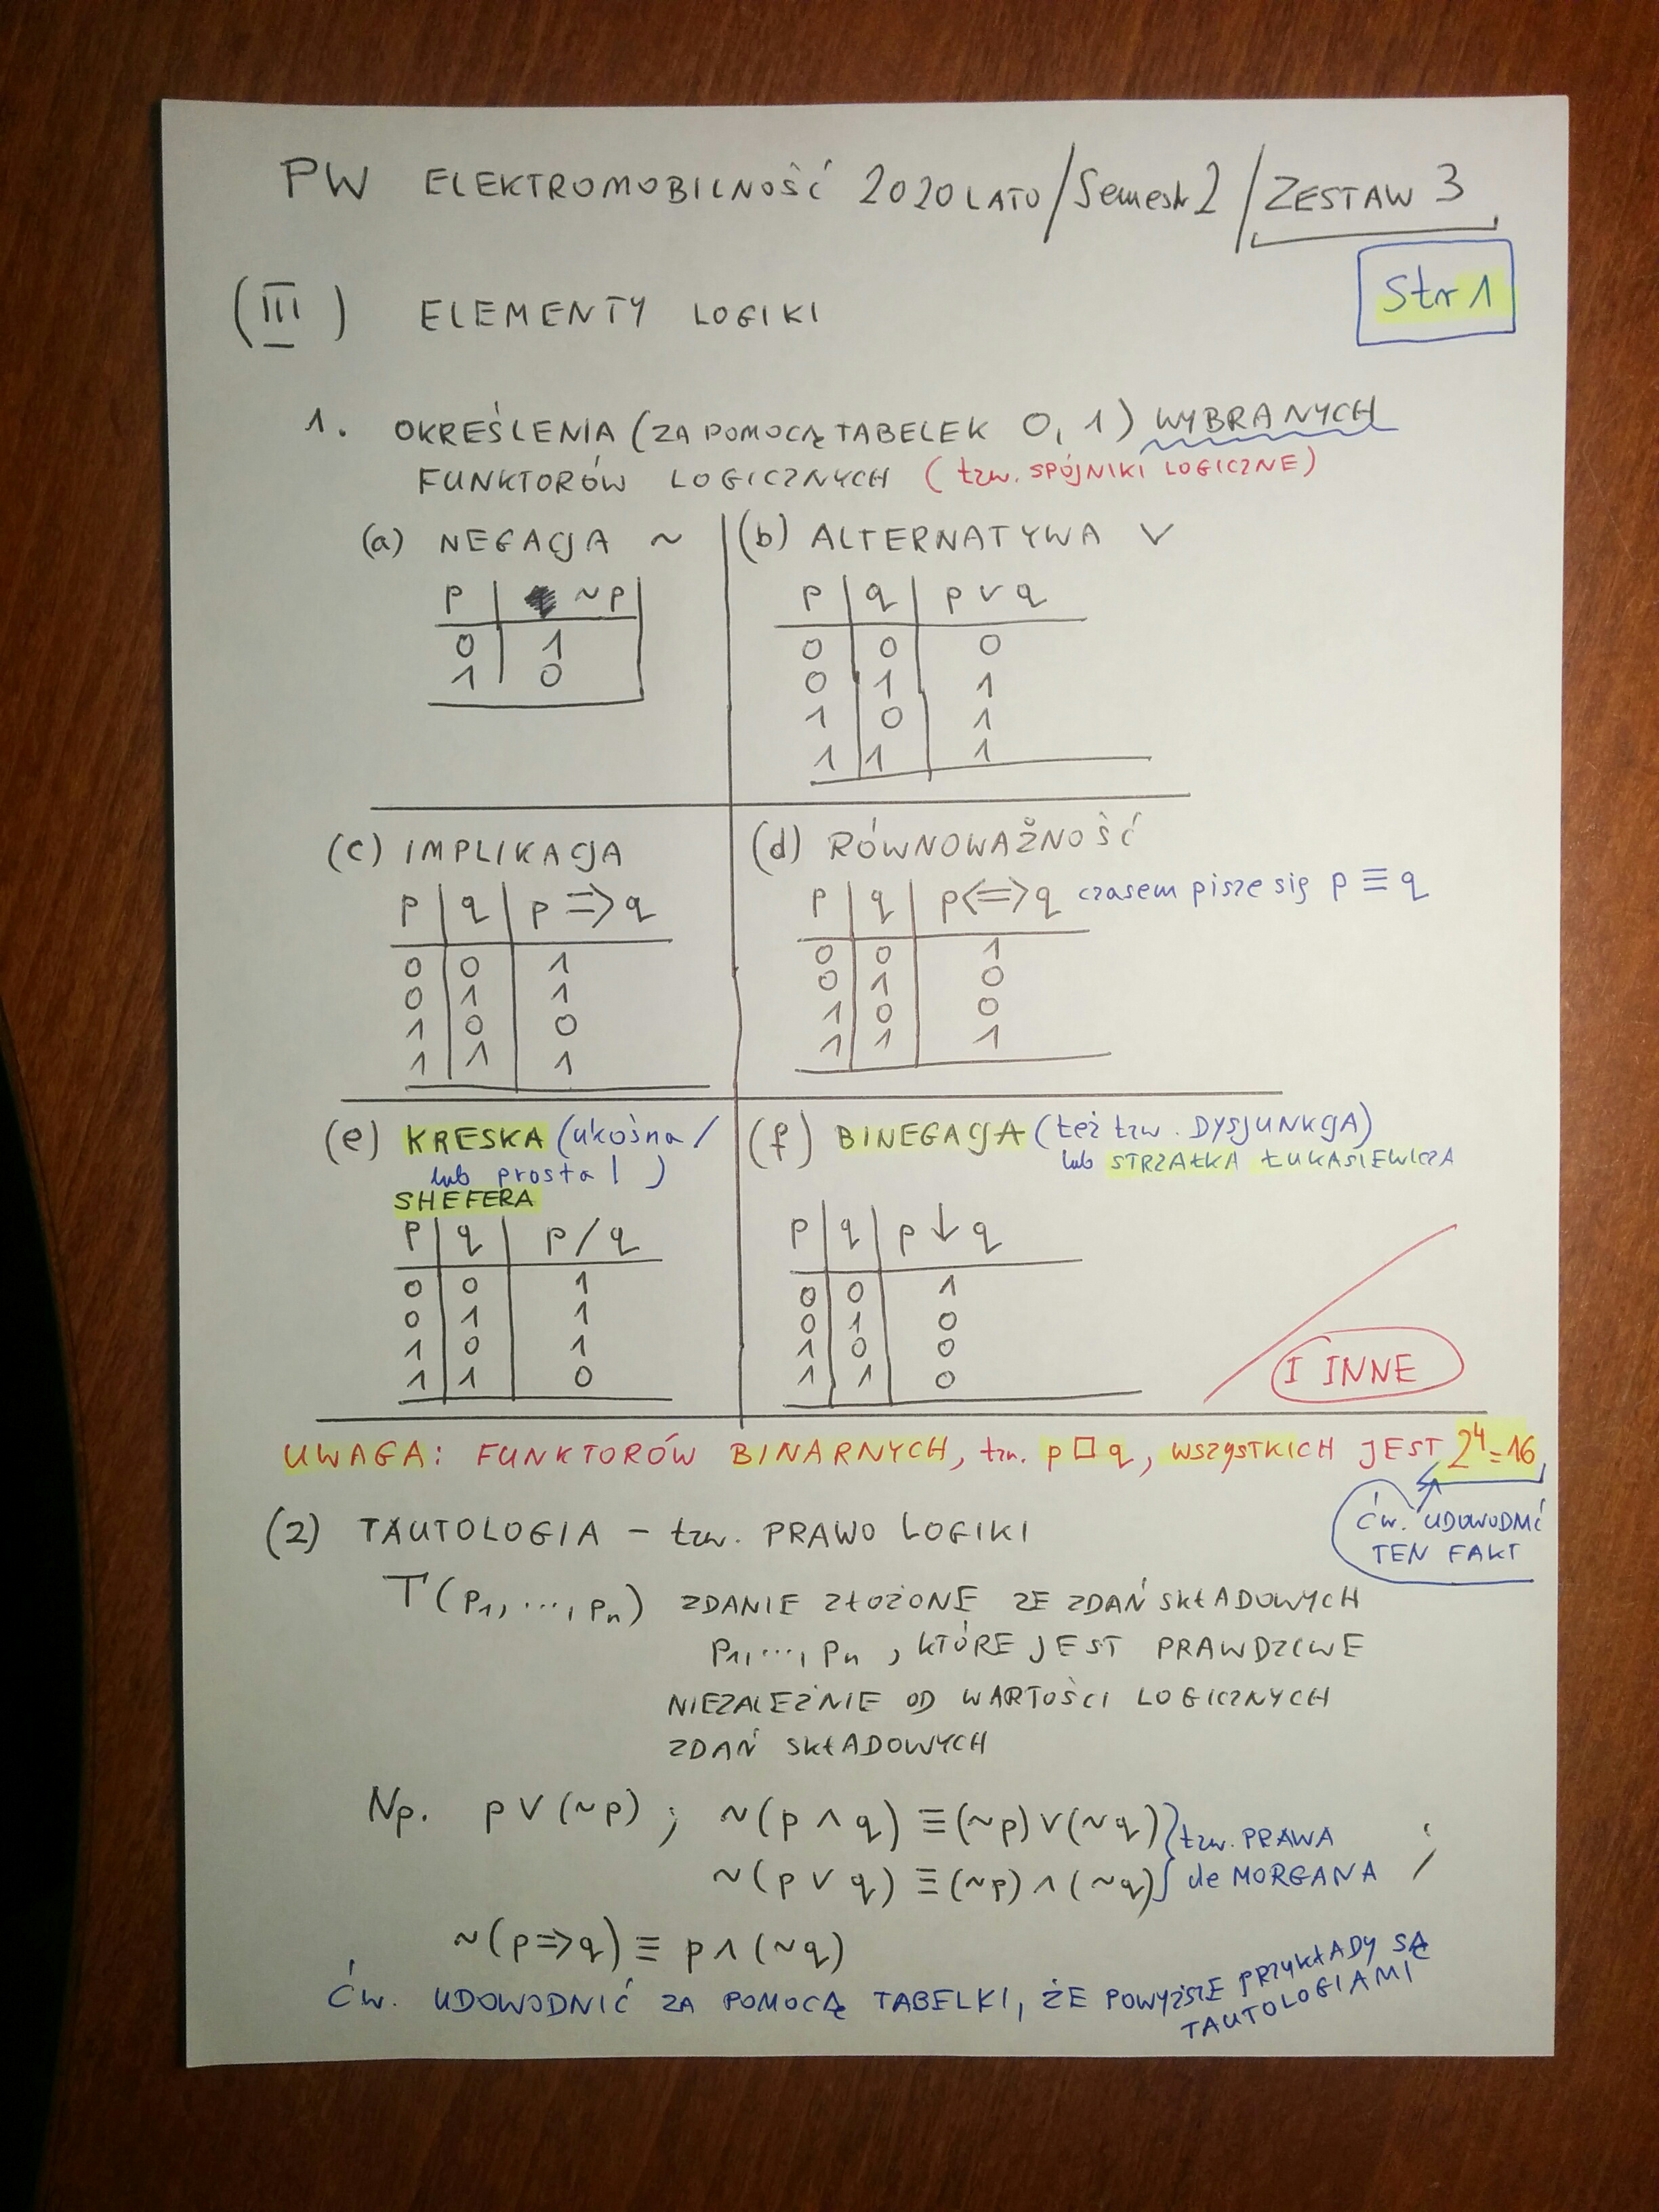 PW ELEKTROMOBILNOŚĆ 2020 LATO / Semestr 2 / ZESTAW 3
Str 1
(III) ELEMENTY LOGIKI
1. OKREŚLENIA (ZA POMOCĄ TABELEK 0, 1) WYBRANYCH
FUNKTORÓW LOGICZNYCH (tzw. SPÓJNIKI LOGICZNE)
(a) NEGACJA ~
p | ~p
0 | 1
1 | 0
(b) ALTERNATYWA ∨
p | q | p ∨ q
0 | 0 | 0
0 | 1 | 1
1 | 0 | 1
1 | 1 | 1
(c) IMPLIKACJA
p | q | p => q
0 | 0 | 1
0 | 1 | 1
1 | 0 | 0
1 | 1 | 1
(d) RÓWNOWAŻNOŚĆ
p | q | p <=> q czasem pisze się p ≡ q
0 | 0 | 1
0 | 1 | 0
1 | 0 | 0
1 | 1 | 1
(e) KRESKA (ukośna /
lub prosta | )
SHEFERA
p | q | p / q
0 | 0 | 1
0 | 1 | 1
1 | 0 | 1
1 | 1 | 0
(f) BINEGACJA (też tzw. DYSJUNKCJA)
lub STRZAŁKA ŁUKASIEWICZA
p | q | p ↓ q
0 | 0 | 1
0 | 1 | 0
1 | 0 | 0
1 | 1 | 0
I INNE
UWAGA: FUNKTORÓW BINARNYCH, tzn. p □ q, WSZYSTKICH JEST 2^4 = 16
ĆW. UDOWODNIĆ
TEN FAKT
(2) TAUTOLOGIA – tzw. PRAWO LOGIKI
T(p₁, ..., pₙ) ZDANIE ZŁOŻONE ZE ZDAŃ SKŁADOWYCH
p₁, ..., pₙ, KTÓRE JEST PRAWDZIWE
NIEZALEŻNIE OD WARTOŚCI LOGICZNYCH
ZDAŃ SKŁADOWYCH
Np. p ∨ (~p) ; ~(p ∧ q) ≡ (~p) ∨ (~q) } tzw. PRAWA
~(p ∨ q) ≡ (~p) ∧ (~q) } de MORGANA ;
~(p => q) ≡ p ∧ (~q)
Ćw. UDOWODNIĆ ZA POMOCĄ TABELKI, ŻE POWYŻSZE PRZYKŁADY SĄ
TAUTOLOGIAMI